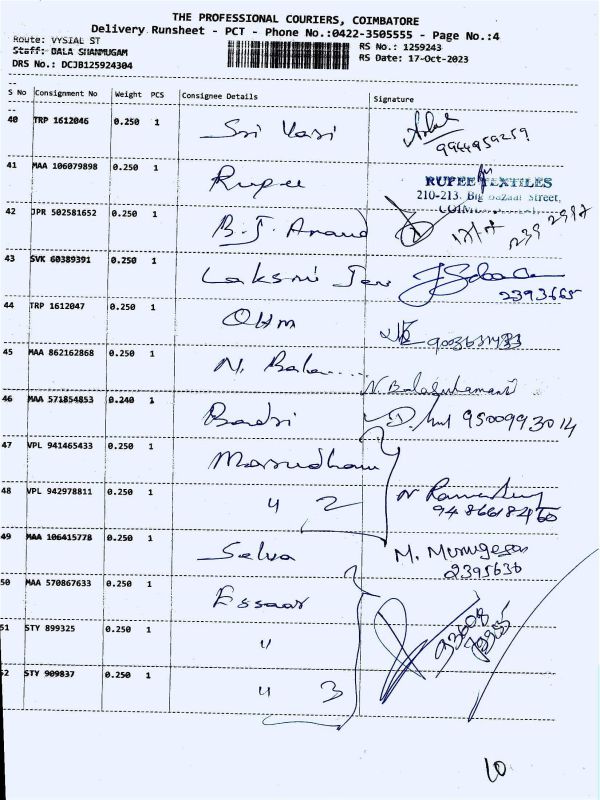 THE PROFESSIONAL COURIERS, COIMBATORE
Delivery Runsheet - PCT - Phone No.:0422-3505555 - Page No.:4
Route: VYSIAL ST
Staff: BALA SHANMUGAM
DRS No.: DCJB125924304
RS No.: 1259243
RS Date: 17-Oct-2023
S No Consignment No Weight PCS Consignee Details Signature
40 TRP 1612046 0.250 1 Sri Vasi
9944959259
41 MAA 106079898 0.250 1 Rupee
RUPEE TEXTILES
210-213, Big Bazaar Street,
42 JPR 502581652 0.250 1 B.J. Anand
43 SVK 60389391 0.250 1 Laksmi Jew
2393665
44 TRP 1612047 0.250 1 OHM
45 MAA 862162868 0.250 1 N. Bala....
N. Balasubamani
46 MAA 571854853 0.240 1 Badri
9500993014
47 VPL 941465433 0.250 1 Marudham
48 VPL 942978811 0.250 1 〃 2
49 MAA 106415778 0.250 1 Selva
M. Murugesan
2395636
50 MAA 570867633 0.250 1 Essaar
51 STY 899325 0.250 1 〃
52 STY 909837 0.250 1 〃 3
10